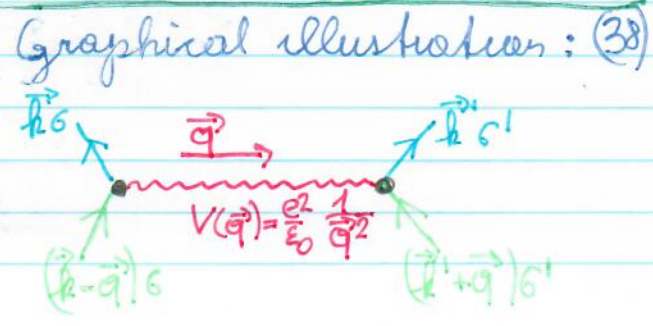 Graphical illustration: (38)
k⃗σ q⃗ k⃗'σ'
V(q⃗)=e²/ε₀ 1/q⃗²
(k⃗-q⃗)σ (k⃗'+q⃗)σ'